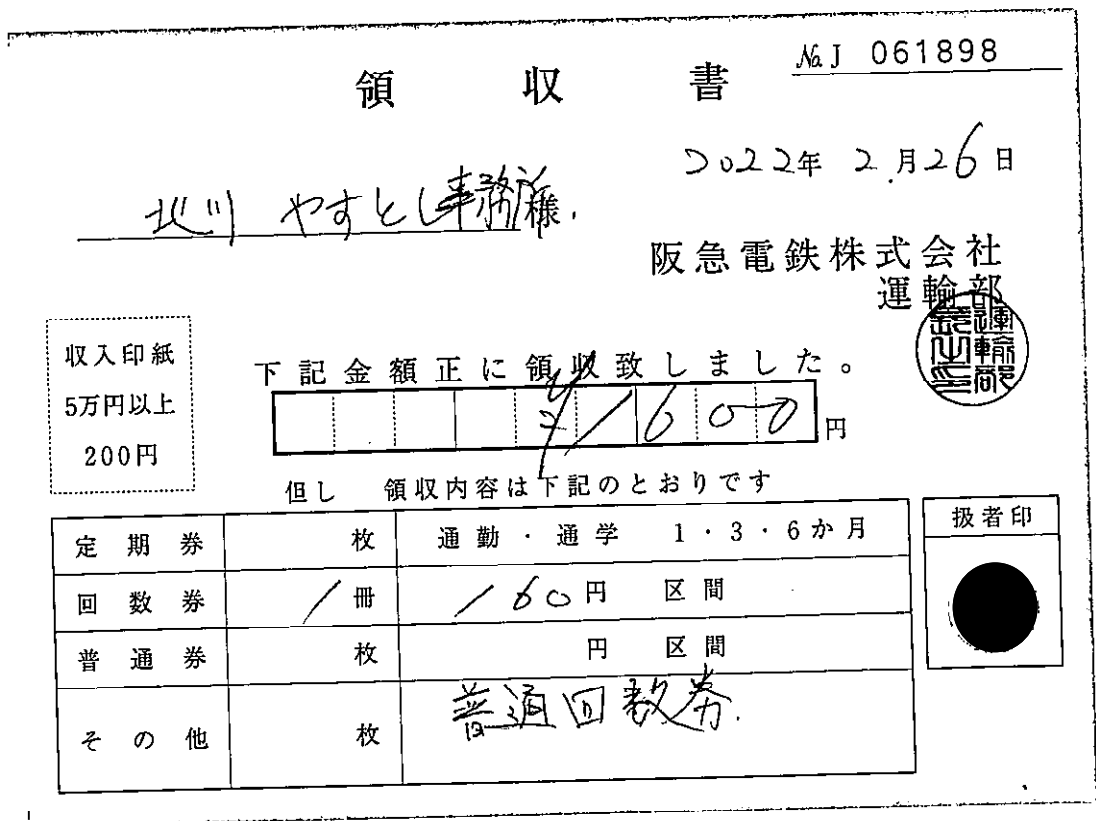 No. J 061898
領収書
2022年 2月26日
北川 やすとし事務所様
阪急電鉄株式会社
運輸部
収入印紙
5万円以上
200円
下記金額正に領収致しました。
¥1600円
但し 領収内容は下記のとおりです
定期券 枚 通勤・通学 1・3・6か月
回数券 1冊 160円 区間
普通券 枚 円 区間
その他 枚 普通回数券
扱者印